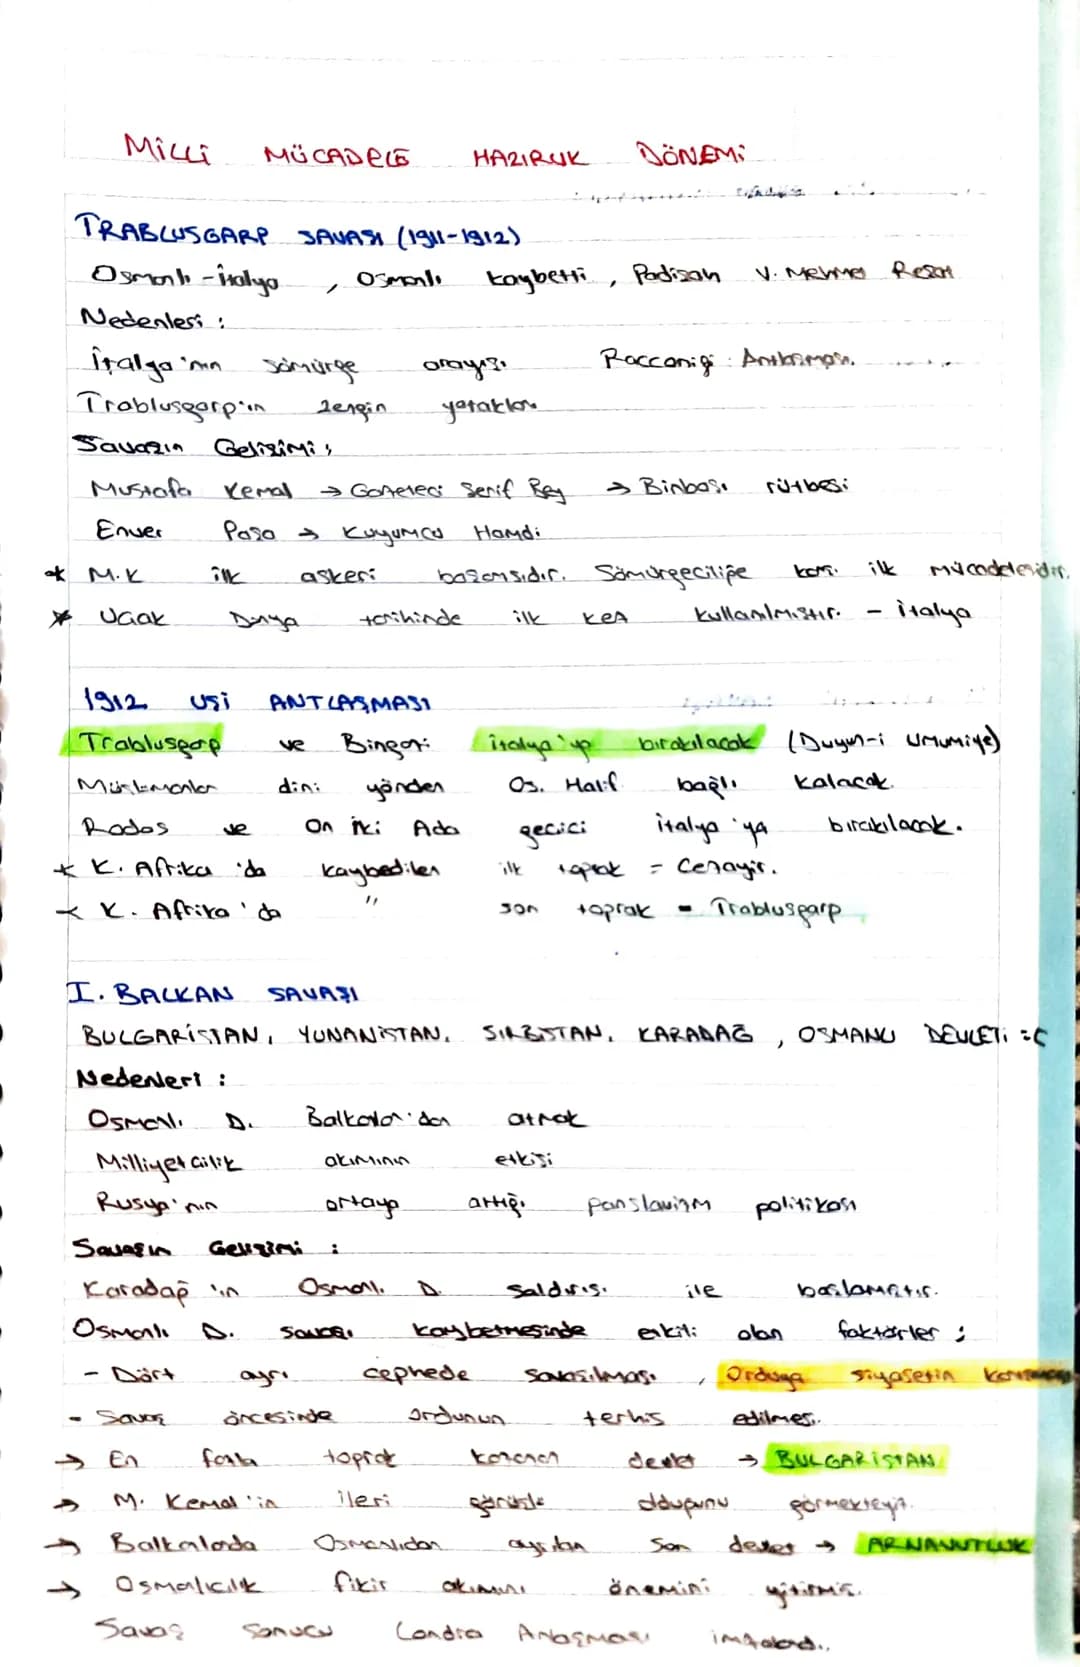 MİLLİ MÜCADELE HAZIRLIK DÖNEMİ
TRABLUSGARP SAVAŞI (1911-1912)
Osmanlı - İtalya , Osmanlı kaybetti , Padişah V. Mehmet Reşat
Nedenleri :
İtalya'nın sömürge arayışı Racconigi Antlaşması.
Trablusgarp'ın zengin yatakları
Savaşın Gelişimi :
Mustafa Kemal → Gazeteci Şerif Bey → Binbaşı rütbesi
Enver Paşa → Kuyumcu Hamdi
* M.K ilk askeri başarısıdır. Sömürgeciliğe karşı ilk mücadelesidir.
* Uçak Dünya tarihinde ilk kez kullanılmıştır. - İtalya
1912 UŞİ ANTLAŞMASI
Trablusgarp ve Bingazi İtalya'ya bırakılacak (Duyun-i Umumiye)
Müslümanlar dini yönden Os. Halif bağlı kalacak.
Rodos ve On İki Ada geçici İtalya'ya bırakılacak.
* K. Afrika'da kaybedilen ilk toprak = Cezayir.
* K. Afrika'da " son toprak = Trablusgarp
I. BALKAN SAVAŞI
BULGARİSTAN, YUNANİSTAN, SIRBİSTAN, KARADAĞ , OSMANLI DEVLETİ :(
Nedenleri :
Osmanlı D. Balkanlar'dan atmak
Milliyetçilik akımının etkisi
Rusya'nın ortaya attığı panslavizm politikası
Savaşın Gelişimi :
Karadağ'ın Osmanlı D. saldırısı ile başlamıştır.
Osmanlı D. savaşı kaybetmesinde etkili olan faktörler :
- Dört ayrı cephede savaşılması , Orduya siyasetin karışması
- Savaş öncesinde ordunun terhis edilmesi.
→ En fazla toprak kazanan devlet → BULGARİSTAN
→ M. Kemal'in ileri görüşlü olduğunu görmekteyiz.
→ Balkanlarda Osmanlıdan ayrılan son devlet → ARNAVUTLUK
→ Osmalıcılık fikir akımını önemini yitirmiş.
Savaş sonucu Londra Anlaşması imzalandı..